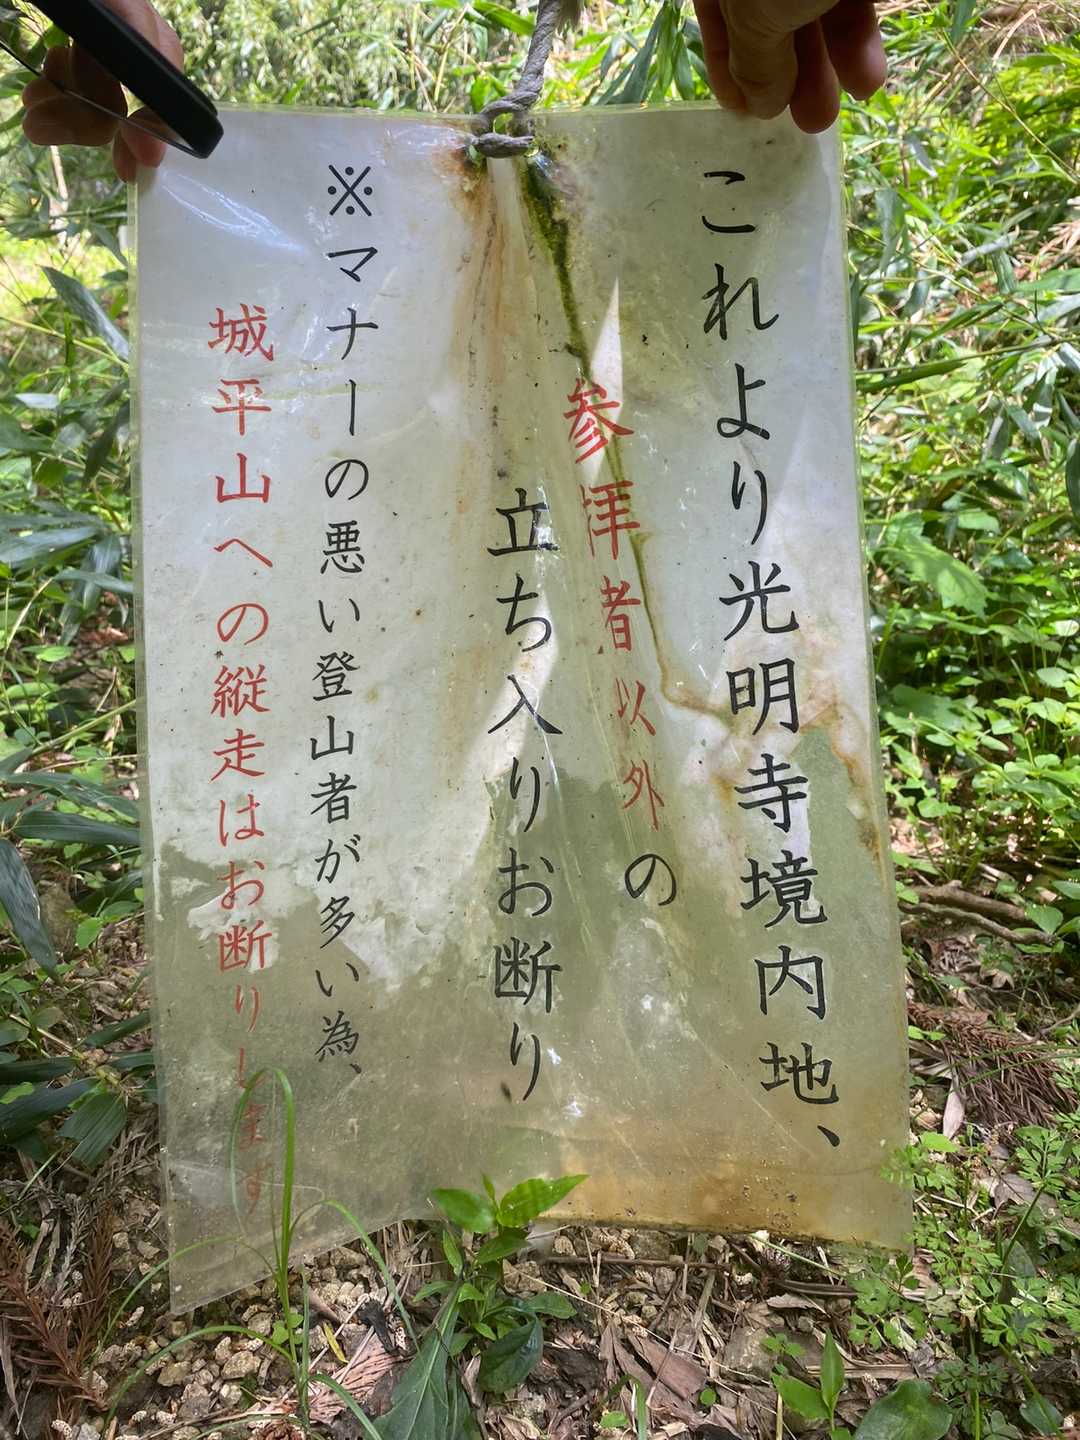 これより光明寺境内地、
参拝者以外の
立ち入りお断り
※マナーの悪い登山者が多い為、
城平山への縦走はお断りします